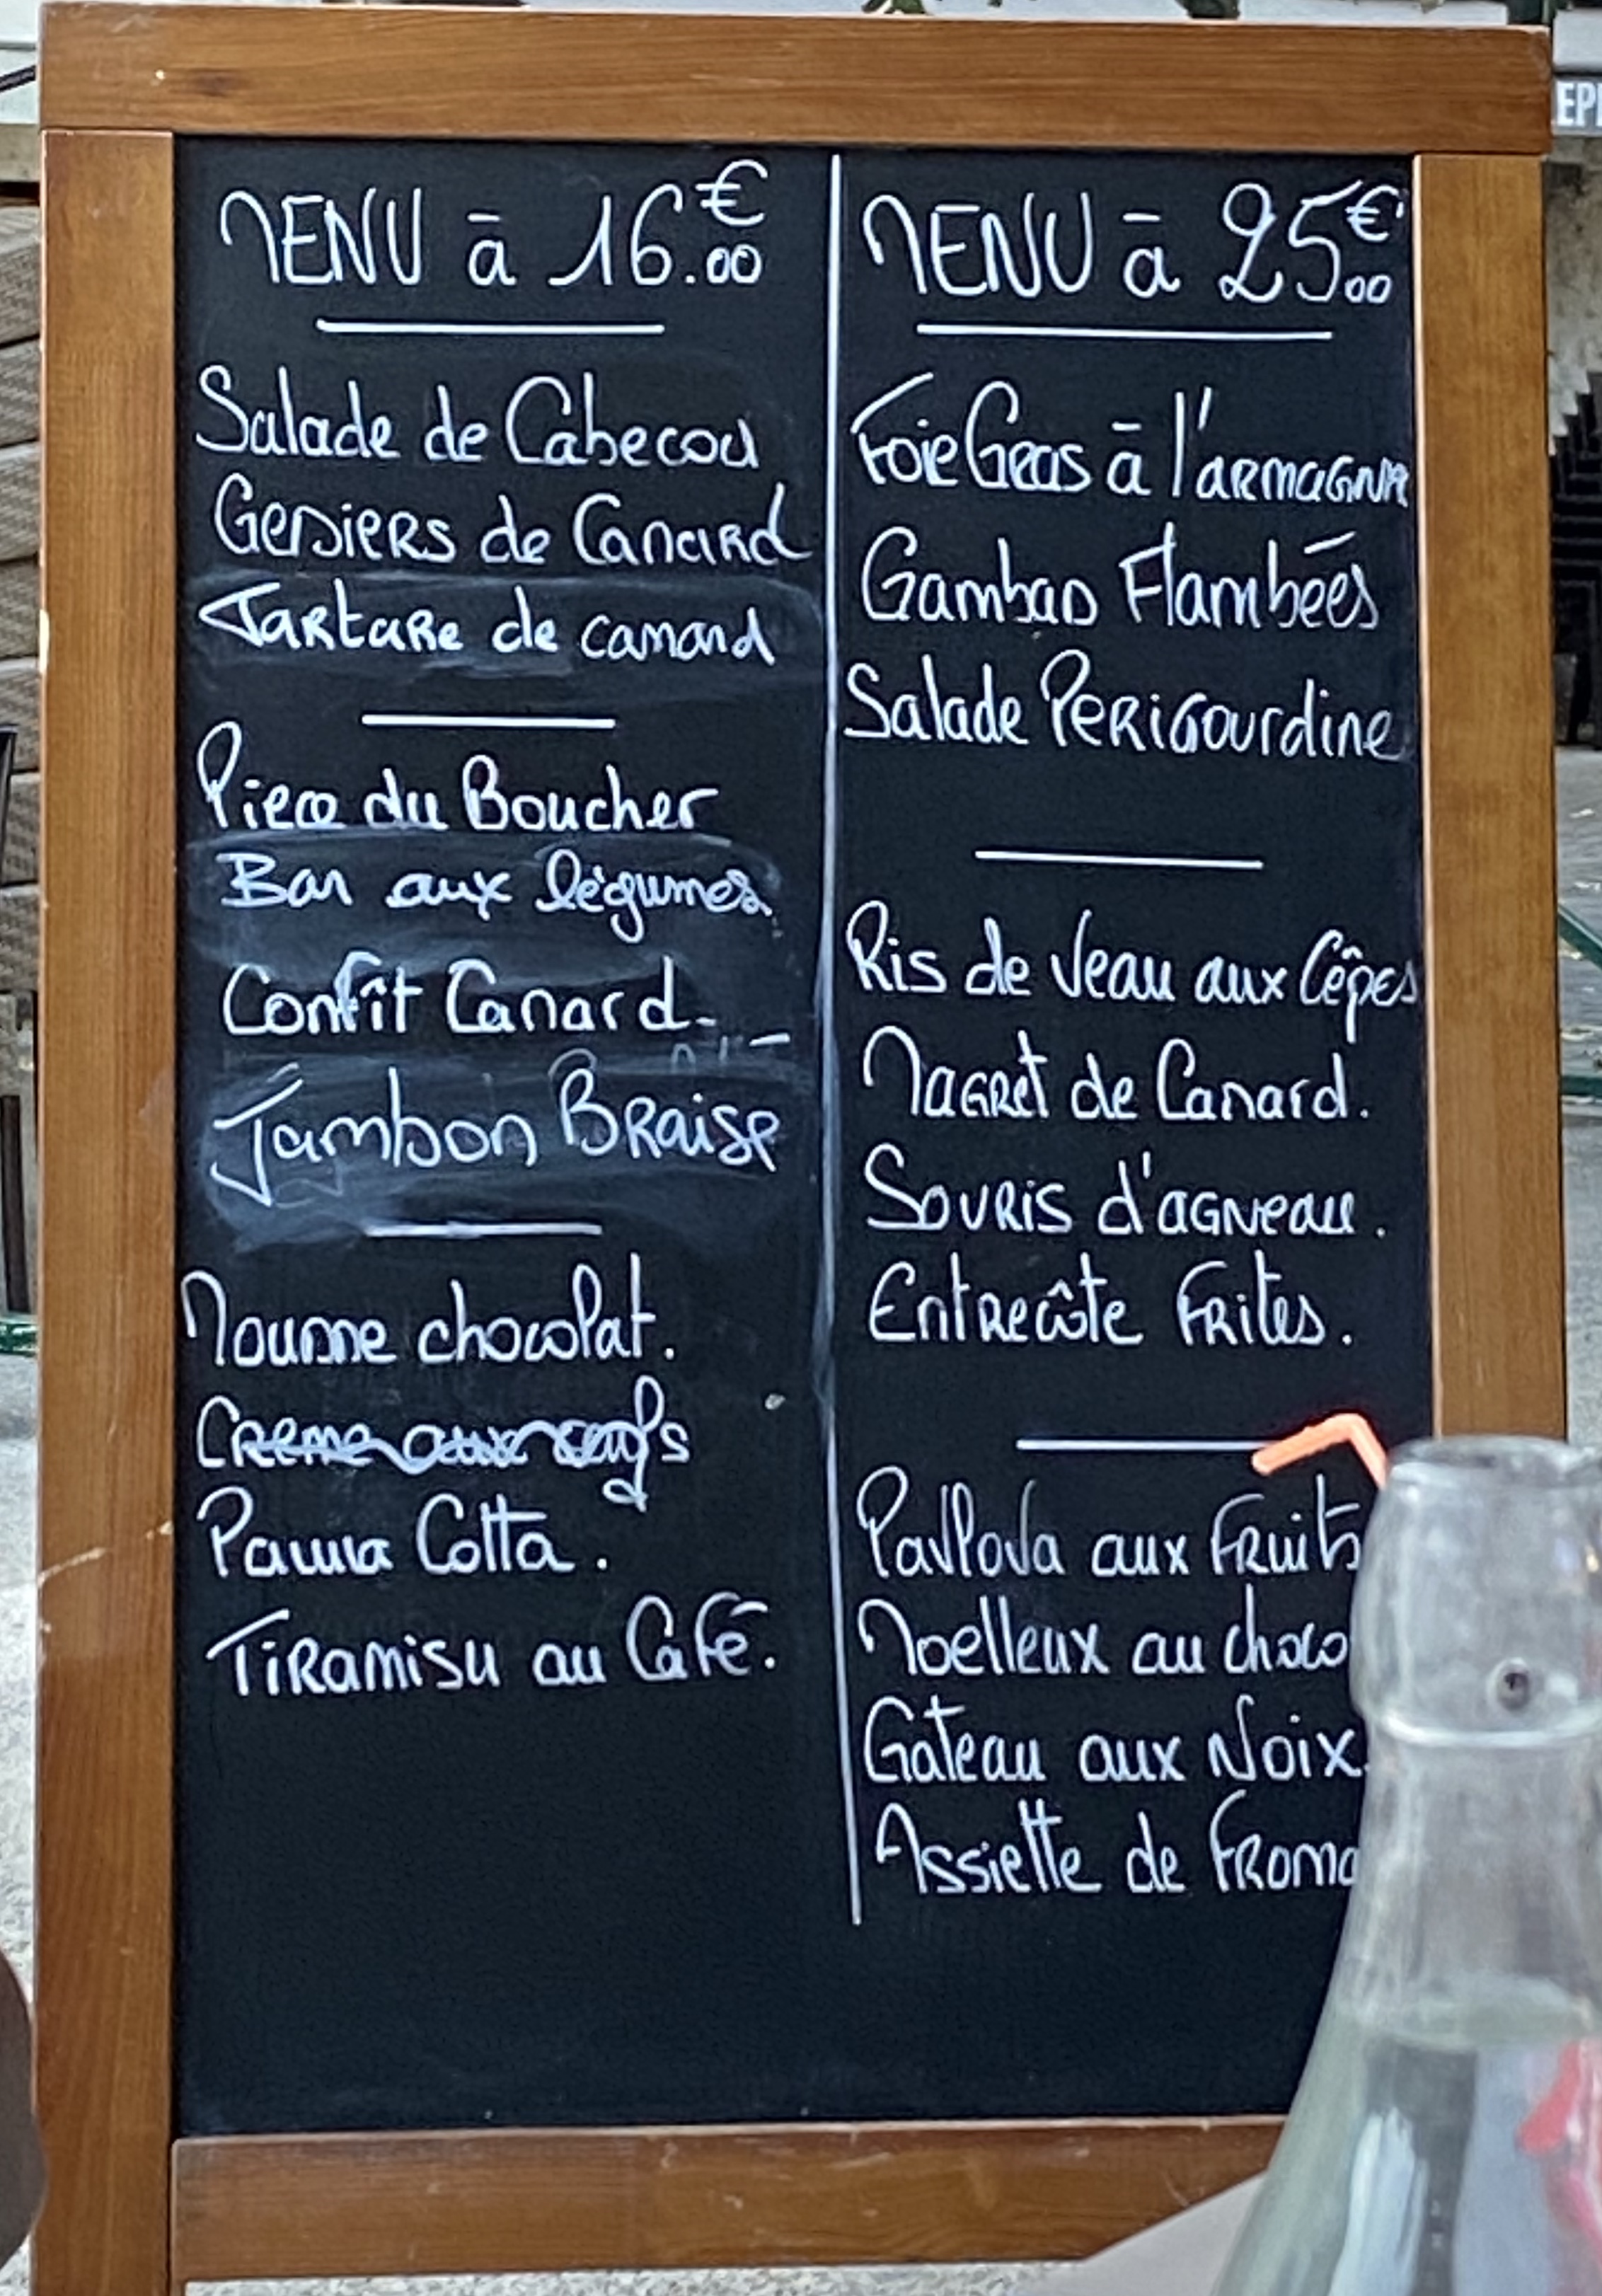 MENU à 16.00€
Salade de Cabecou
Gesiers de Canard
Tartare de canard
Piece du Boucher
Bar aux légumes
Confît Canard
Jambon Braise
Mousse chocolat.
Creme aux oeufs
Panna Cotta.
Tiramisu au Café.
MENU à 25.00€
Foie Gras à l'armagnac
Gambas Flambées
Salade Perigourdine
Ris de Veau aux Cêpes
Magret de Canard.
Souris d'agneau.
Entrecôte Frites.
Pavlova aux Fruits
Moelleux au choco
Gateau aux Noix.
Assiette de Froma
EPI